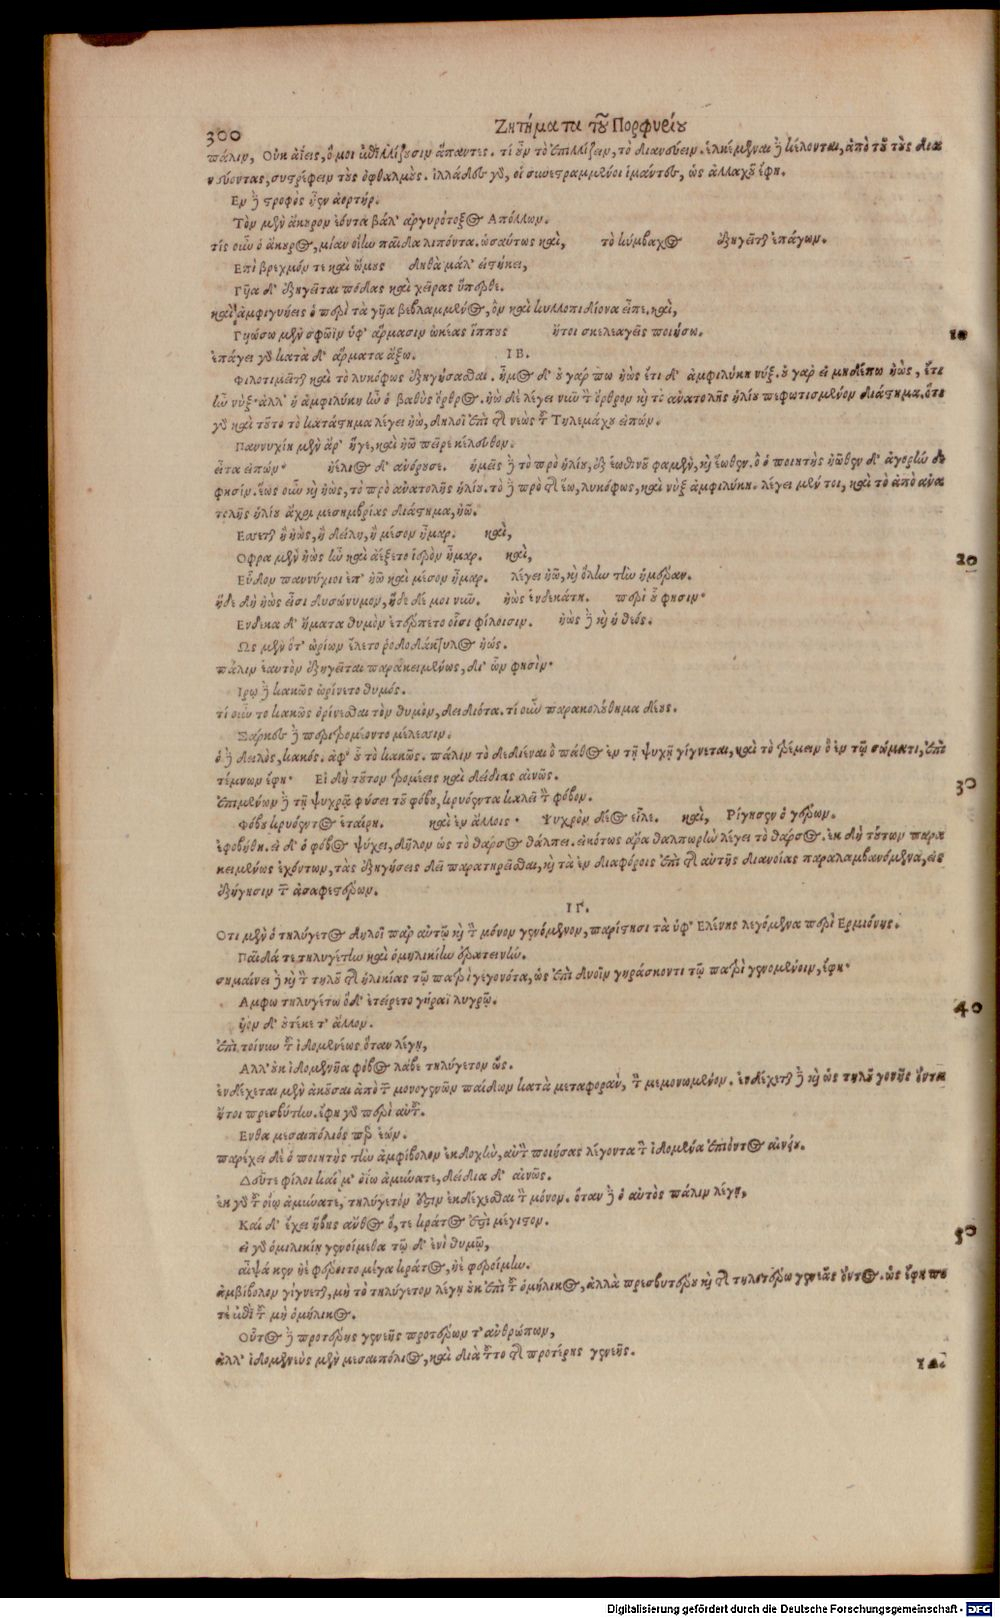 300
Ζητήματα τοῦ Πορφυρίου
πάλιν, Οὐκ ἀίεις, ὅ μοι ἐπιλλίζουσιν ἅπαντες. τί οὖν τὸ ἐπιλλίζειν, τὸ διανεύειν. ἑλκέμεναι δὲ κέλονται, ἀπὸ τοῦ τοὺς δια
νεύοντας, συστρέφειν τοὺς ὀφθαλμούς. ἰλλάδες γὰρ, οἱ συνεστραμμένοι ἱμάντες, ὡς ἀλλαχοῦ ἔφη.
Εν δὲ στροφὸς ἦεν ἀορτήρ.
Τὸν μὲν ἄκουρον ἐόντα βάλ' ἀργυρότοξος Απόλλων.
τίς οὖν ὁ ἄκουρος, μίαν οἴην παῖδα λιπόντα. ὡσαύτως καὶ, τὸ κύμβαχος ἐξηγεῖται ἐπάγων.
Επὶ βρεχμόν τε καὶ ὤμους δηθὰ μάλ' εἱστήκει,
Γυῖα δ' ἐξηγεῖται πόδας καὶ χεῖρας ὕπερθε.
καὶ ἀμφιγυήεις ὁ περὶ τὰ γυῖα βεβλαμμένος, ὃν καὶ κυλλοποδίονα εἶπε. καὶ,
Γυιώσω μὲν σφῶϊν ὑφ' ἅρμασιν ὠκέας ἵππους ἤτοι σκελεαγεῖς ποιήσω.
10
ἐπάγει γὰρ κατὰ δ' ἅρματα ἄξω. ΙΒ.
Φιλοτιμεῖται καὶ τὸ λυκόφως ἐξηγήσασθαι. ἦμος δ' οὐ γάρ πω ἠὼς ἔτι δ' ἀμφιλύκη νύξ. οὐ γὰρ εἰ μηδέπω ἠὼς, ἔτι
ἦν νύξ. ἀλλ' ἡ ἀμφιλύκη ἦν ὁ βαθὺς ὄρθρος. ἠὼ δὲ λέγει νῦν τὸν ὄρθρον καὶ τὸ ἀνατολῆς ἡλίου πεφωτισμένον διάστημα. ὅτι
γὰρ καὶ τοῦτο τὸ κατάστημα λέγει ἠῶ, δηλοῖ ἐπὶ τῆς νεὼς τοῦ Τηλεμάχου εἰπών.
Παννυχίη μὲν ἄρ' ἥγε, καὶ ἠῶ πεῖρε κέλευθον.
εἶτα εἰπών. ἠέλιος δ' ἀνόρουσε. ἡμεῖς δὲ τὸ πρὸ ἡλίου, ἐξ ἑωθινοῦ φαμὲν, καὶ ἕωθεν. ὃ ὁ ποιητὴς ἠῶθεν δ' ἀγορὴν δὲ
φησίν. ἕως οὖν καὶ ἠὼς, τὸ πρὸ ἀνατολῆς ἡλίου. τὸ δὲ πρὸ τῆς ἕω, λυκόφως, καὶ νὺξ ἀμφιλύκη. λέγει μέν τοι, καὶ τὸ ἀπὸ ἀνα
τολῆς ἡλίου ἄχρι μεσημβρίας διάστημα, ἠῶ.
Εσσεται ἢ ἠὼς, ἢ δείλη, ἢ μέσον ἦμαρ. καὶ,
Οφρα μὲν ἠὼς ἦν καὶ ἀέξετο ἱερὸν ἦμαρ. καὶ,
20
Εὗδον παννύχιοι ἐπ' ἠῶ καὶ μέσον ἦμαρ. λέγει ἠῶ, καὶ ὅλην τὴν ἡμέραν.
ἥδε δὴ ἠὼς εἶσι δυσώνυμον, ἥδε δέ μοι νῦν. ἠὼς ἑνδεκάτη. περὶ οὗ φησιν.
Ενδεκα δ' ἤματα θυμὸν ἐτέρπετο οἷσι φίλοισιν. ἠὼς δὲ καὶ ἡ θεός.
Ως μὲν ὅτ' ὠρίων' ἕλετο ῥοδοδάκτυλος ἠώς.
πάλιν ἑαυτὸν ἐξηγεῖται παρακειμένως, δι' ὧν φησὶν.
Ιρῳ δὲ κακῶς ὠρίνετο θυμός.
τί οὖν το κακῶς ὀρίνεσθαι τὸν θυμὸν, δειδιότα. τί οὖν παρακολούθημα δέους.
Σάρκες δὲ περιτρομέοντο μέλεσσιν.
ὁ δὲ δειλὸς, κακός. ἀφ' οὗ τὸ κακῶς. πάλιν τὸ δεδιέναι ὃ πάθος ἐν τῇ ψυχῇ γίγνεται, καὶ τὸ τρέμειν ὃ ἐν τῷ σώματι, ἐπι
τέμνων ἔφη. Εἰ δὴ τοῦτον τρομέεις καὶ δείδιας αἰνῶς.
30
ἐπιμένων δὲ τῇ ψυχρᾷ φύσει τοῦ φόβου, κρυόεντα καλεῖ τὸν φόβον.
Φόβου κρυόεντος ἑταίρη. καὶ ἐν ἄλλοις. Ψυχρὸν δέος εἷλε. καὶ, Ρίγησεν ὁ γέρων.
ἐφοβήθη. εἰ δ' ὁ φόβος ψύχει, δῆλον ὡς τὸ θάρσος θάλπει. εἰκότως ἄρα θαλπωρὴν λέγει τὸ θάρσος. ἐκ δὴ τούτων παρα
κειμένως ἐχόντων, τὰς ἐξηγήσεις δεῖ παρατηρεῖσθαι, καὶ τὰ ἐν διαφόροις ἐπὶ τῆς αὐτῆς διανοίας παραλαμβανόμενα, εἰς
ἐξήγησιν τῶν ἀσαφεστέρων.
ΙΓ.
Οτι μὲν ὁ τηλύγετος δηλοῖ παρ' αὐτῷ καὶ τὸν μόνον γενόμενον, παρίστησι τὰ ὑφ' Ελένης λεγόμενα περὶ Ερμιόνης.
Παῖδά τε τηλυγέτην καὶ ὁμηλικίην ἐρατεινήν.
σημαίνει δὲ καὶ τὸν τηλοῦ τῆς ἡλικίας τῷ πατρὶ γεγονότα, ὡς ἐπὶ δυοῖν γηράσκοντι τῷ πατρὶ γενομένοιν, ἔφη.
Αμφω τηλυγέτω ὃ δ' ἐτείρετο γήραϊ λυγρῷ.
40
ὑὸν δ' οὐ τέκετ' ἄλλον.
ἐπὶ τοίνυν τοῦ ἰδομενέως ὅταν λέγῃ,
Αλλ' οὐκ ἰδομενῆα φόβος λάβε τηλύγετον ὥς.
ἐνδέχεται μὲν ἀκοῦσαι ἀπὸ τῶν μονογενῶν παίδων κατὰ μεταφορὰν, τὸν μεμονωμένον. ἐνδέχεται δὲ καὶ ὡς τηλοῦ γονῆς ὄντα
ἤτοι πρεσβύτην. ἔφη γὰρ περὶ αὐτοῦ.
Ενθα μεσαιπόλιός περ ἐών.
παρέχει δὲ ὁ ποιητὴς τὴν ἀμφίβολον ἐκδοχὴν, αὐτὸν ποιήσας λέγοντα τὸν ἰδομενέα ἐπιόντος αἰνείου.
Δεῦτε φίλοι καί μ' οἴῳ ἀμύνατε, δείδια δ' αἰνῶς.
ἐκ γὰρ τοῦ οἴῳ ἀμύνατε, τηλύγετόν ἐστιν ἐκδέχεσθαι τὸν μόνον. ὅταν δὲ ὁ αὐτὸς πάλιν λέγῃ,
Καί δ' ἔχει ἥβης ἄνθος ὅ, τε κράτος ἐστὶ μέγιστον.
50
εἰ γὰρ ὁμιλικίη γενοίμεθα τῷ δ' ἐνὶ θυμῷ,
αἶψά κεν ἠὲ φέροιτο μέγα κράτος, ἠὲ φεροίμην.
ἀμβίβολον γίγνεται, μὴ τὸ τηλύγετον λέγῃ οὐκ ἐπὶ τοῦ ὁμήλικος, ἀλλὰ πρεσβυτέρου καὶ τῆς τηλοτέρω γενεᾶς ὄντος. ὡς ἔφη που
τε ἐπὶ τοῦ μὴ ὁμήλικος.
Οὗτος δὲ προτέρης γενεῆς προτέρων τ' ἀνθρώπων,
ἀλλ' ἰδομενεὺς μὲν μεσαιπόλιος, καὶ διὰ τοῦτο τῆς προτέρης γενεῆς.
Digitalisierung gefördert durch die Deutsche Forschungsgemeinschaft - DFG